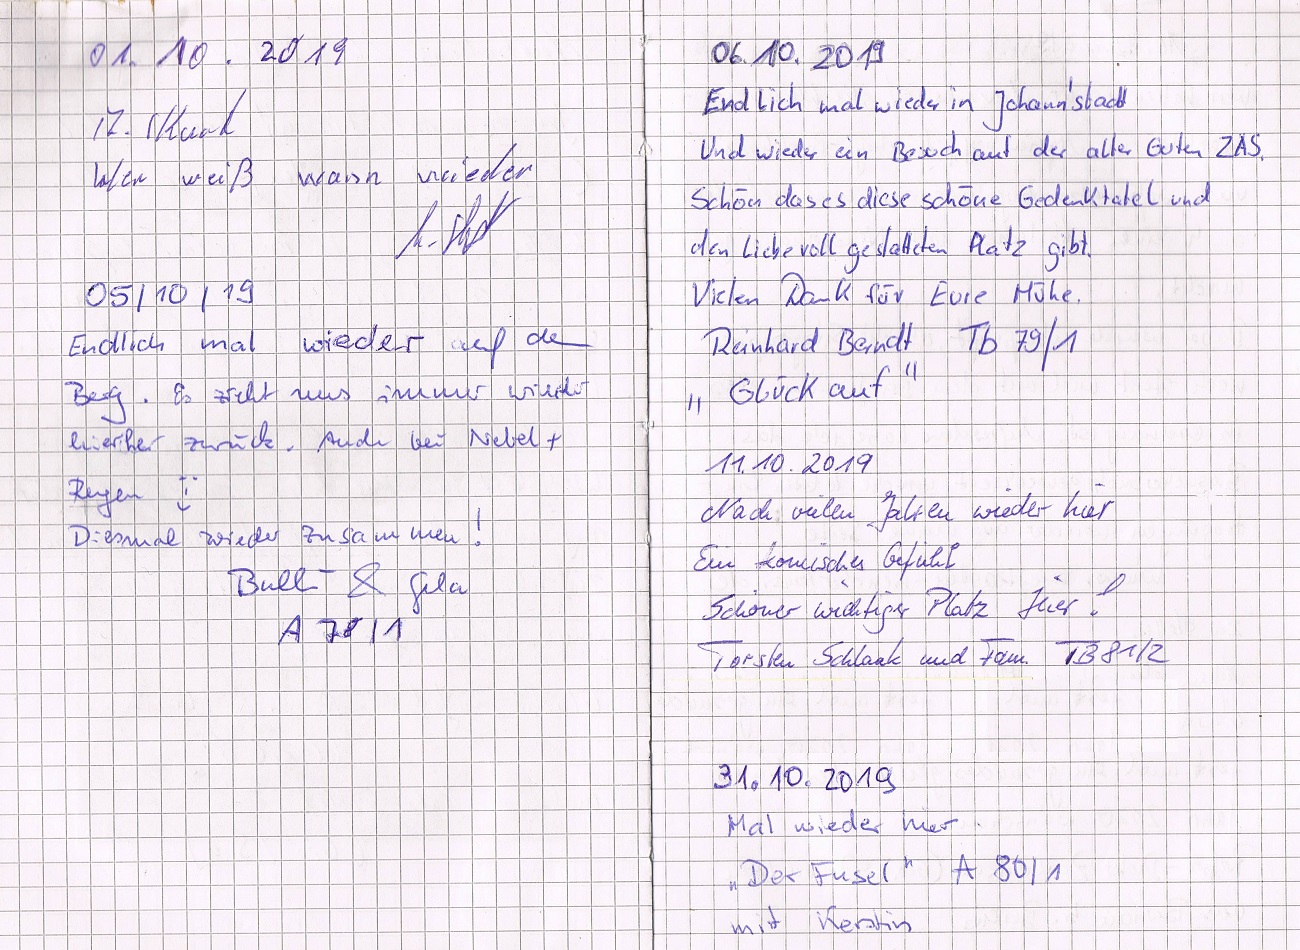 01.10.2019
Wer weiß wann wieder
05/10/19
Endlich mal wieder auf de
Berg. Es zieht uns immer wieder
hierher zurück. Auch bei Nebel +
Regen
Diesmal wieder zusammen!
Bulli & Gila
A 78/1
06.10.2019
Endlich mal wieder in Johann'stadt
Und wieder ein Besuch auf der alten Guten ZAS.
Schön das es diese schöne Gedenktafel und
den Liebevoll gestalteten Platz gibt.
Vielen Dank für Eure Mühe.
Reinhard Berndt Tb 79/1
„Glück auf"
11.10.2019
Nach vielen Jahren wieder hier
Ein komisches Gefühl
Schöner wichtiger Platz hier!
Torsten Schlaak und Fam. TB 81/2
31.10.2019
Mal wieder hier.
„Der Fusel" A 80/1
mit Kerstin